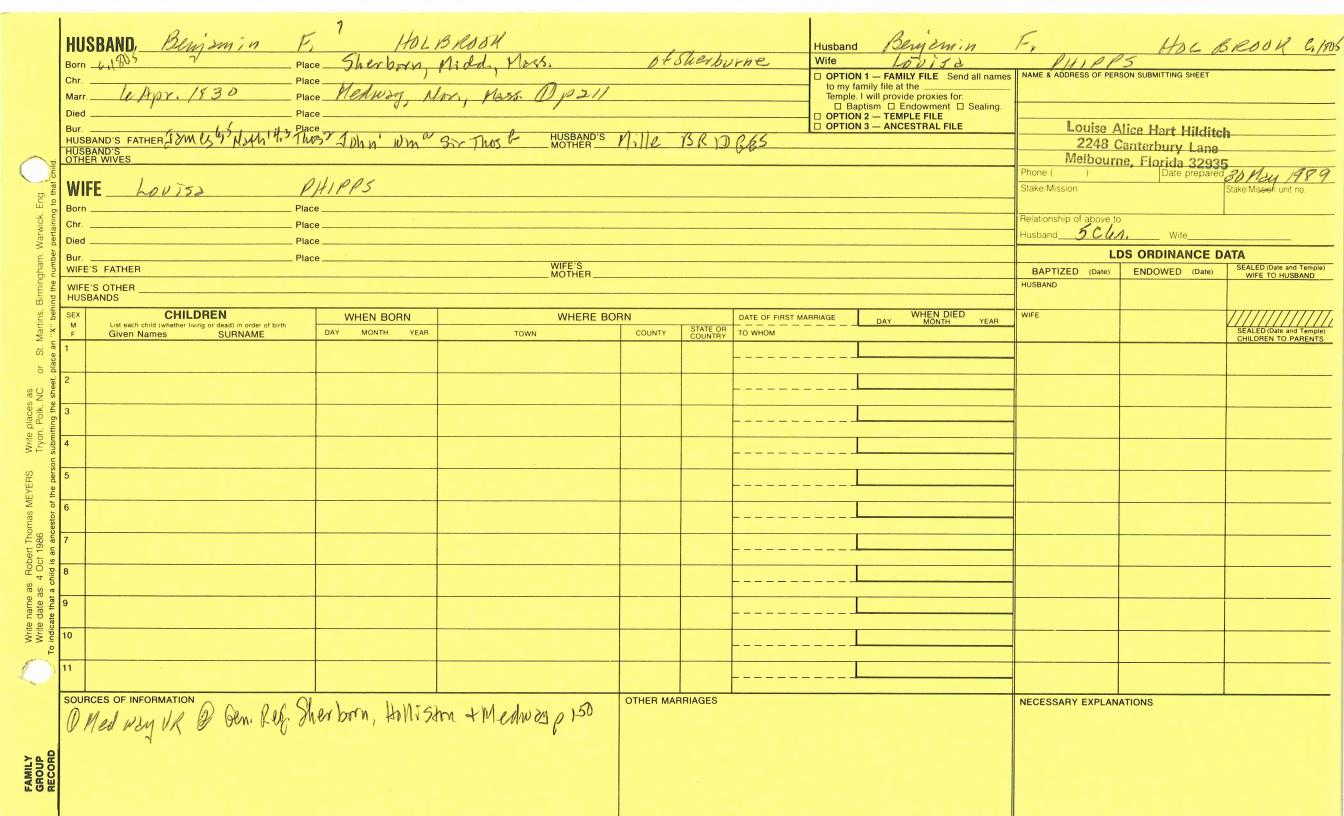 7
HUSBAND Benjamin F. HOLBROOK
Born c.1805 Place Sherborn, Midd., Mass. of Sherburne
Chr. Place
Marr. 6 Apr. 1830 Place Medway, Nor., Mass. ① p211
Died Place
Bur. Place
HUSBAND'S FATHER James Nath Thos John Wm Sir Thos HUSBAND'S MOTHER Mille BRIDGES
HUSBAND'S OTHER WIVES
WIFE Louisa PHIPPS
Born Place
Chr. Place
Died Place
Bur. Place
WIFE'S FATHER WIFE'S MOTHER
WIFE'S OTHER HUSBANDS
Husband Benjamin F. HOLBROOK c.1805
Wife Louisa PHIPPS
☐ OPTION 1 — FAMILY FILE Send all names
to my family file at the
Temple. I will provide proxies for:
☐ Baptism ☐ Endowment ☐ Sealing.
☐ OPTION 2 — TEMPLE FILE
☐ OPTION 3 — ANCESTRAL FILE
NAME & ADDRESS OF PERSON SUBMITTING SHEET
Louise Alice Hart Hilditch
2248 Canterbury Lane
Melbourne, Florida 32935
Phone ( ) Date prepared 30 May 1989
Stake/Mission Stake/Mission unit no.
Relationship of above to
Husband 5 C6r. Wife
LDS ORDINANCE DATA
BAPTIZED (Date) ENDOWED (Date) SEALED (Date and Temple) WIFE TO HUSBAND
HUSBAND
WIFE
SEALED (Date and Temple) CHILDREN TO PARENTS
SEX M F
CHILDREN
List each child (whether living or dead) in order of birth
Given Names SURNAME
WHEN BORN
DAY MONTH YEAR
WHERE BORN
TOWN COUNTY STATE OR COUNTRY
DATE OF FIRST MARRIAGE
TO WHOM
WHEN DIED
DAY MONTH YEAR
1
2
3
4
5
6
7
8
9
10
11
SOURCES OF INFORMATION
① Medway VR ② Gen. Reg. Sherborn, Holliston + Medway p 150
OTHER MARRIAGES
NECESSARY EXPLANATIONS
Write name as: Robert Thomas MEYERS Write places as: Tryon, Polk, NC or St. Martins, Birmingham, Warwick, Eng.
Write date as: 4 Oct 1986
To indicate that a child is an ancestor of the person submitting the sheet, place an "X" behind the number pertaining to that child.
FAMILY GROUP RECORD